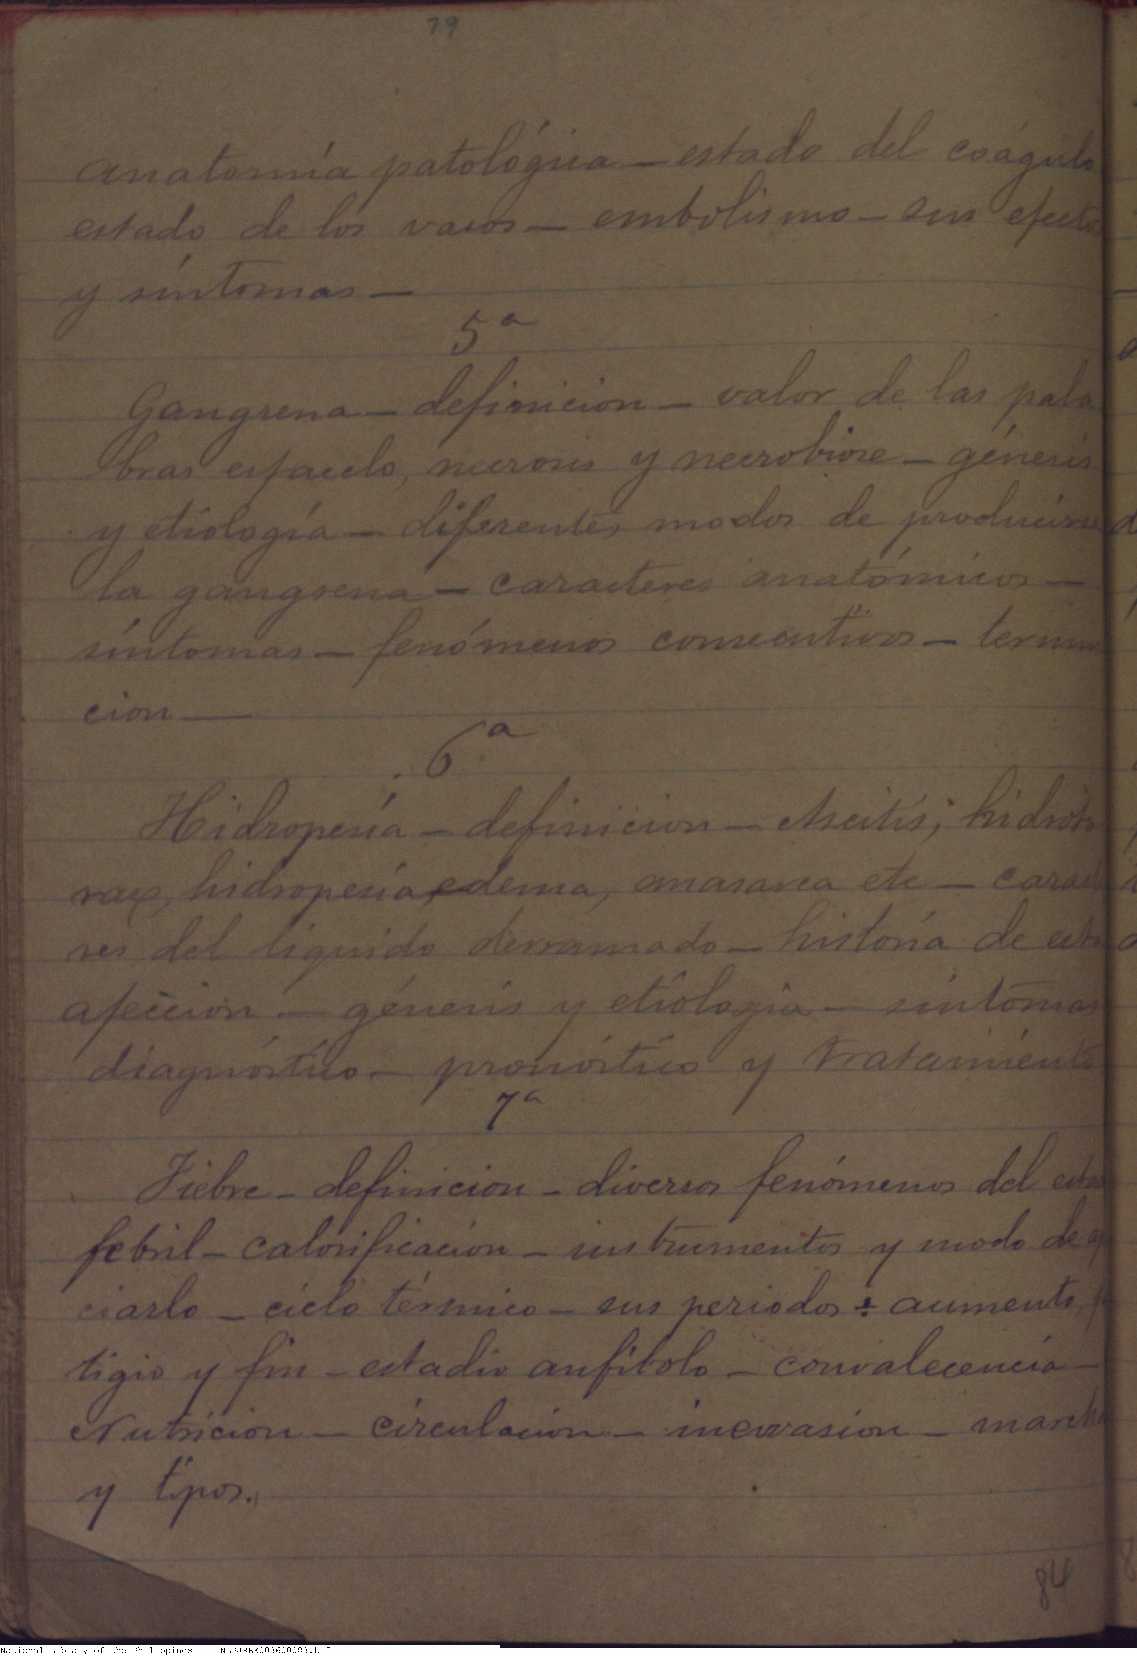 79
Anatomía patológica — estado del coágulo
estado de los vasos — embolismo — sus efectos
y síntomas —
5ª
Gangrena — definicion — valor de las pala
bras esfacelo, necrosis y necrobiose — génesis
y etiología — diferentes modos de producirse
la gangrena — caracteres anatómicos —
síntomas — fenómenos consecutivos — termina
cion —
6ª
Hidropesía — definicion — Ascitis, hidroto
rax, hidropesía, edema, anasarca etc — caracte
res del líquido derramado — historia de esta
afeccion — génesis y etiología — síntomas
diagnóstico — pronóstico y tratamiento
7ª
Fiebre — definicion — diversos fenómenos del estado
febril — calorificacion — instrumentos y modo de
ciarlo — ciclo térmico — sus periodos ÷ aumento,
tigio y fin — estadio anfibolo — convalecencia —
Nutricion — circulacion — — marcha
y tipos.
84
National Library of the Philippines